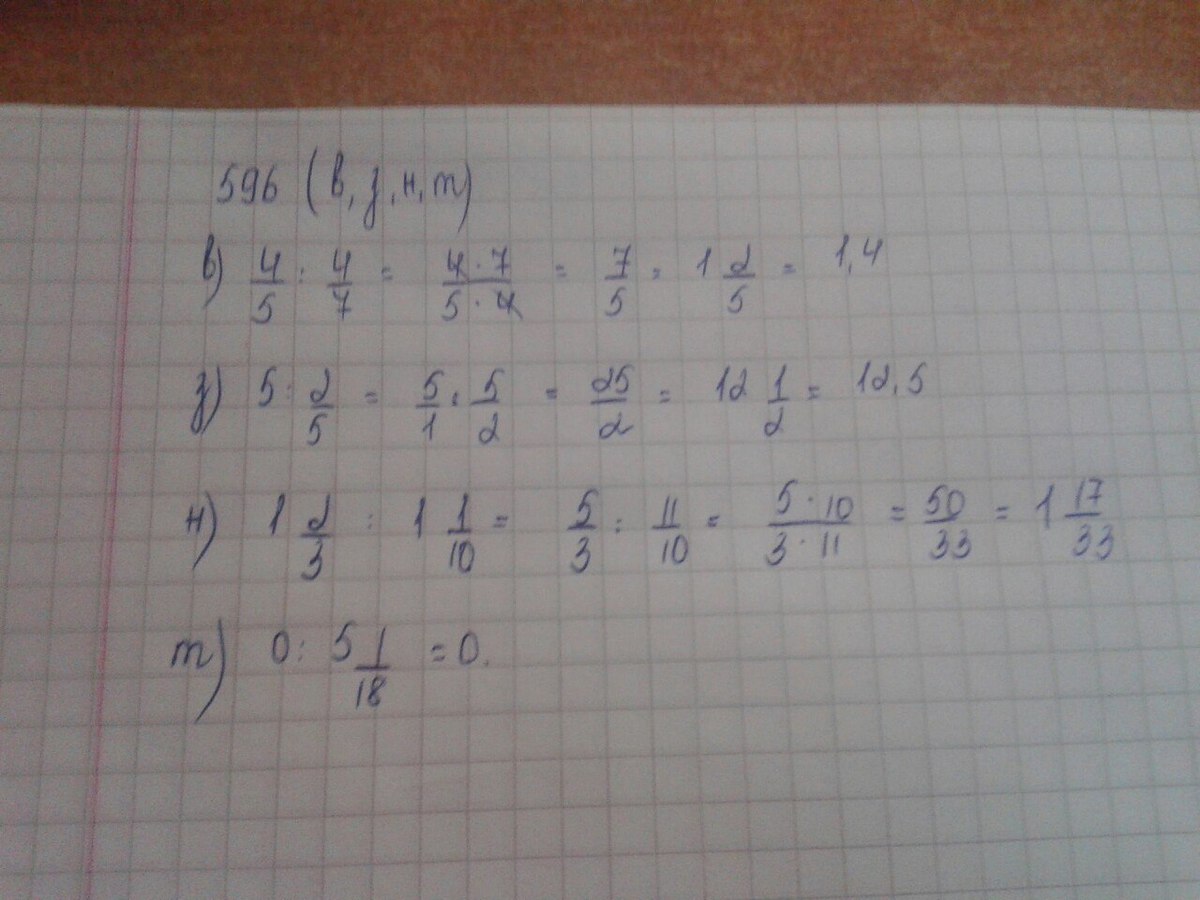 596 (в, з, н, т)
в) 4/5 : 4/7 = 4·7/5·4 = 7/5 = 1 2/5 = 1,4
з) 5 : 2/5 = 5/1 · 5/2 = 25/2 = 12 1/2 = 12,5
н) 1 2/3 : 1 1/10 = 5/3 : 11/10 = 5·10/3·11 = 50/33 = 1 17/33
т) 0 : 5 1/18 = 0.